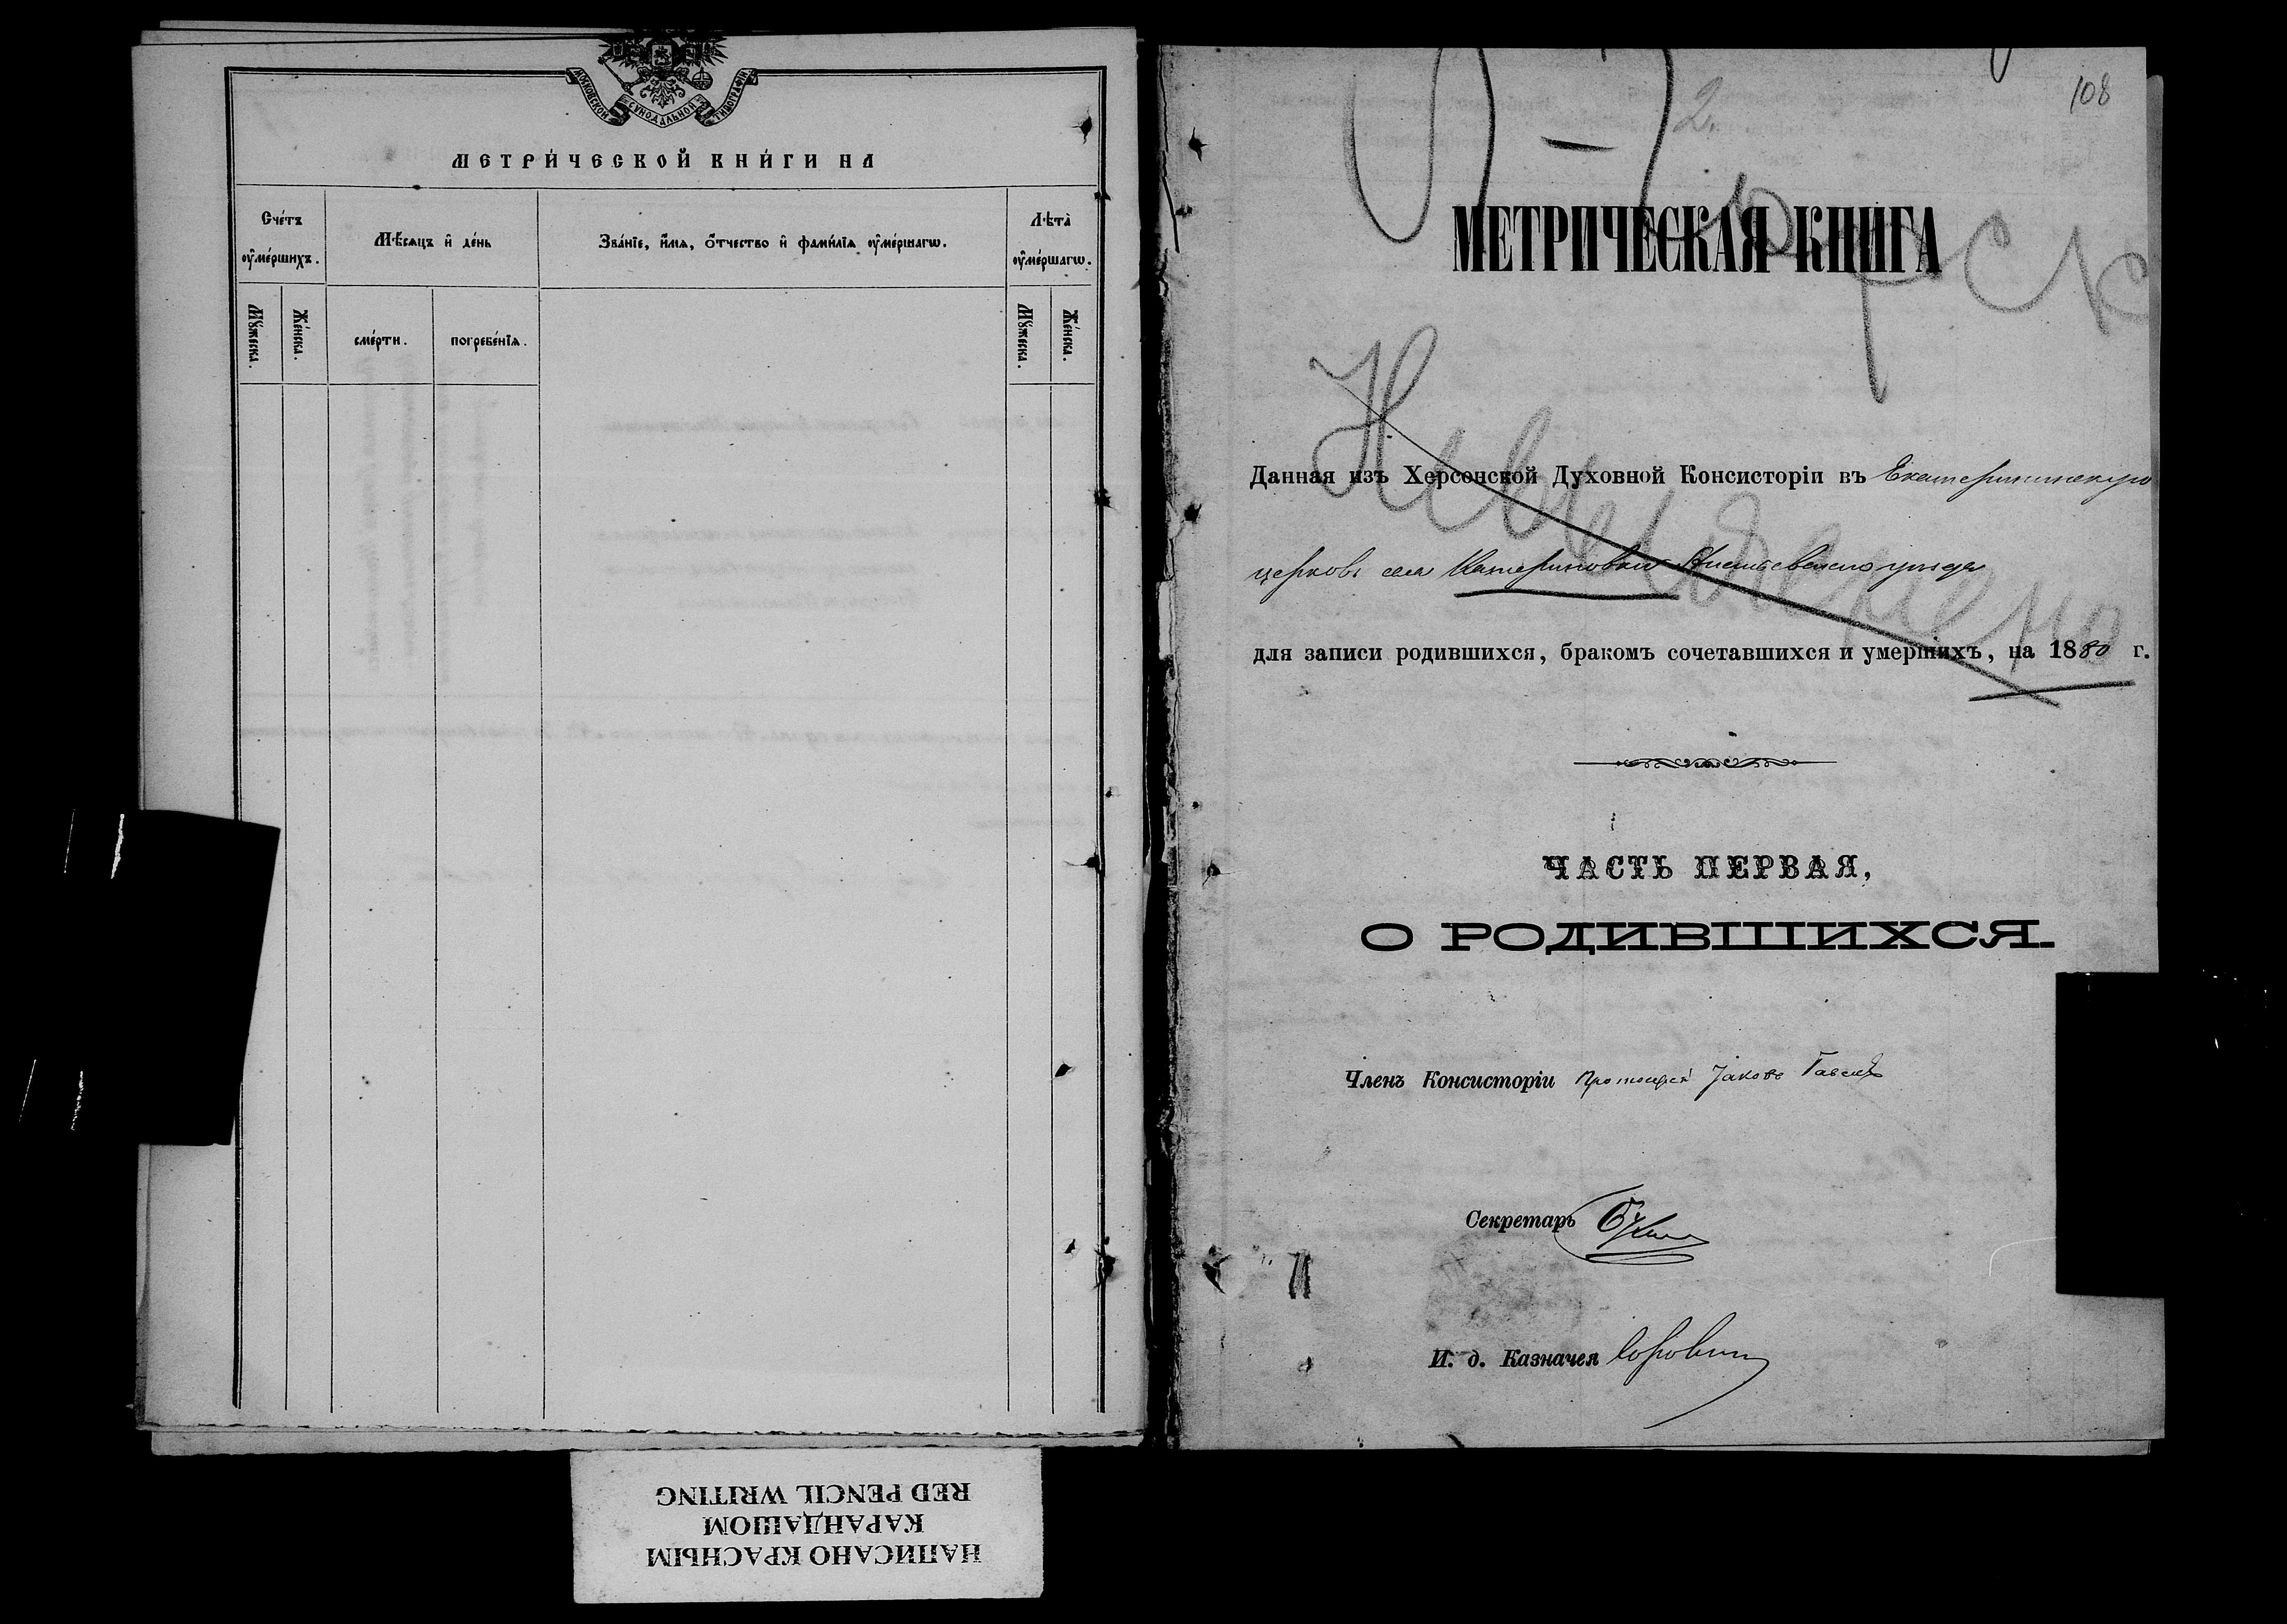 МОСКОВСКОЙ СУНОДАЛЬНОЙ ТИПОГРАФІИ
МЕТРИ́ЧЕСКОЙ КНИ́ГИ НА
Сче́тъ оу҆ме́ршихъ.
Мѣ́сяцъ и҆ де́нь
Зва́нїе, и҆́мя, ѻ҆́тчество и҆ фами́лїя оу҆ме́ршагѡ.
Лѣ́та оу҆ме́ршагѡ.
Мꙋ́жеска.
Же́нска.
сме́рти.
погребе́нїя.
Мꙋ́жеска.
Же́нска.
108
2.
МЕТРИЧЕСКАЯ КНИГА
Данная изъ Херсонской Духовной Консисторіи въ Екатерининскую
церковь села Катериновки Ананьевскаго уѣзда
для записи родившихся, бракомъ сочетавшихся и умершихъ, на 1880 г.
ЧАСТЬ ПЕРВАЯ,
О РОДИВШИХСЯ.
Членъ Консисторіи Протоіерей Іаковъ
Секретарь
И. д. Казначея
НАПИСАНО КРАСНЫМ
КАРАНДАШОМ
RED PENCIL WRITING